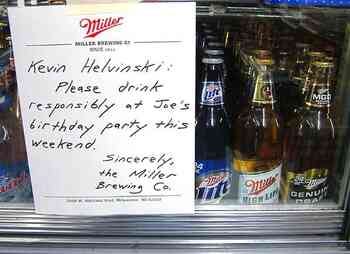 Miller
MILLER BREWING CO
SINCE 1855
Kevin Helvinski:
Please drink
responsibly at Joe's
birthday party this
weekend.
Sincerely,
the Miller
Brewing Co.
Lite
Miller
HIGH LIFE
MGD
Miller
GENUINE
DRAFT